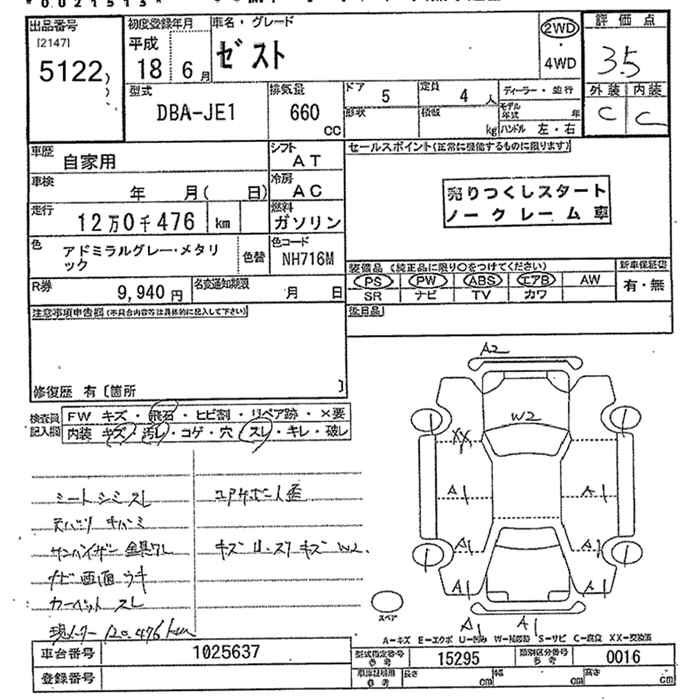 出品番号
[2147]
5122
初度登録年月
平成
18 6月
車名・グレード
ゼスト
2WD
・
4WD
評価点
3.5
外装 内装
C C
型式
DBA-JE1
排気量
660
CC
ドア 5
定員 4人
形状
積載 kg
ディーラー・並行
モデル年式 年
ハンドル 左・右
車歴
自家用
シフト
AT
車検
年 月( 日)
冷房
AC
走行
12万0千476 km
燃料
ガソリン
色
アドミラルグレー・メタリ
ック
色替
色コード
NH716M
R券
9,940円
名変通知期限
月 日
セールスポイント(正常に機能するものに限ります)
売りつくしスタート
ノークレーム車
装備品 (純正品に限り○をつけてください)
PS PW ABS エアB AW
SR ナビ TV カワ
新車保証書
有・無
後日品
注意事項申告欄(不具合内容等は具体的に記入して下さい)
修復歴 有〔箇所 〕
検査員
記入欄
FW キズ・飛石・ヒビ割・リペア跡・×要
内装 キズ・汚レ・コゲ・穴・スレ・キレ・破レ
シートシミスレ
ナビ画面ウキ
カーペットスレ
現メーター120,476km
キズ
W2
A2
W2
XX
A1
A1
A1
A1
A1
A1
A1
A1
スペア
A-キズ E-エクボ U-凹み W-補修跡 S-サビ C-腐食 XX-交換済
車台番号
1025637
型式指定番号
参考
15295
類別区分番号
参考
0016
登録番号
車庫証明用
参考
長さ cm
幅 cm
高さ cm